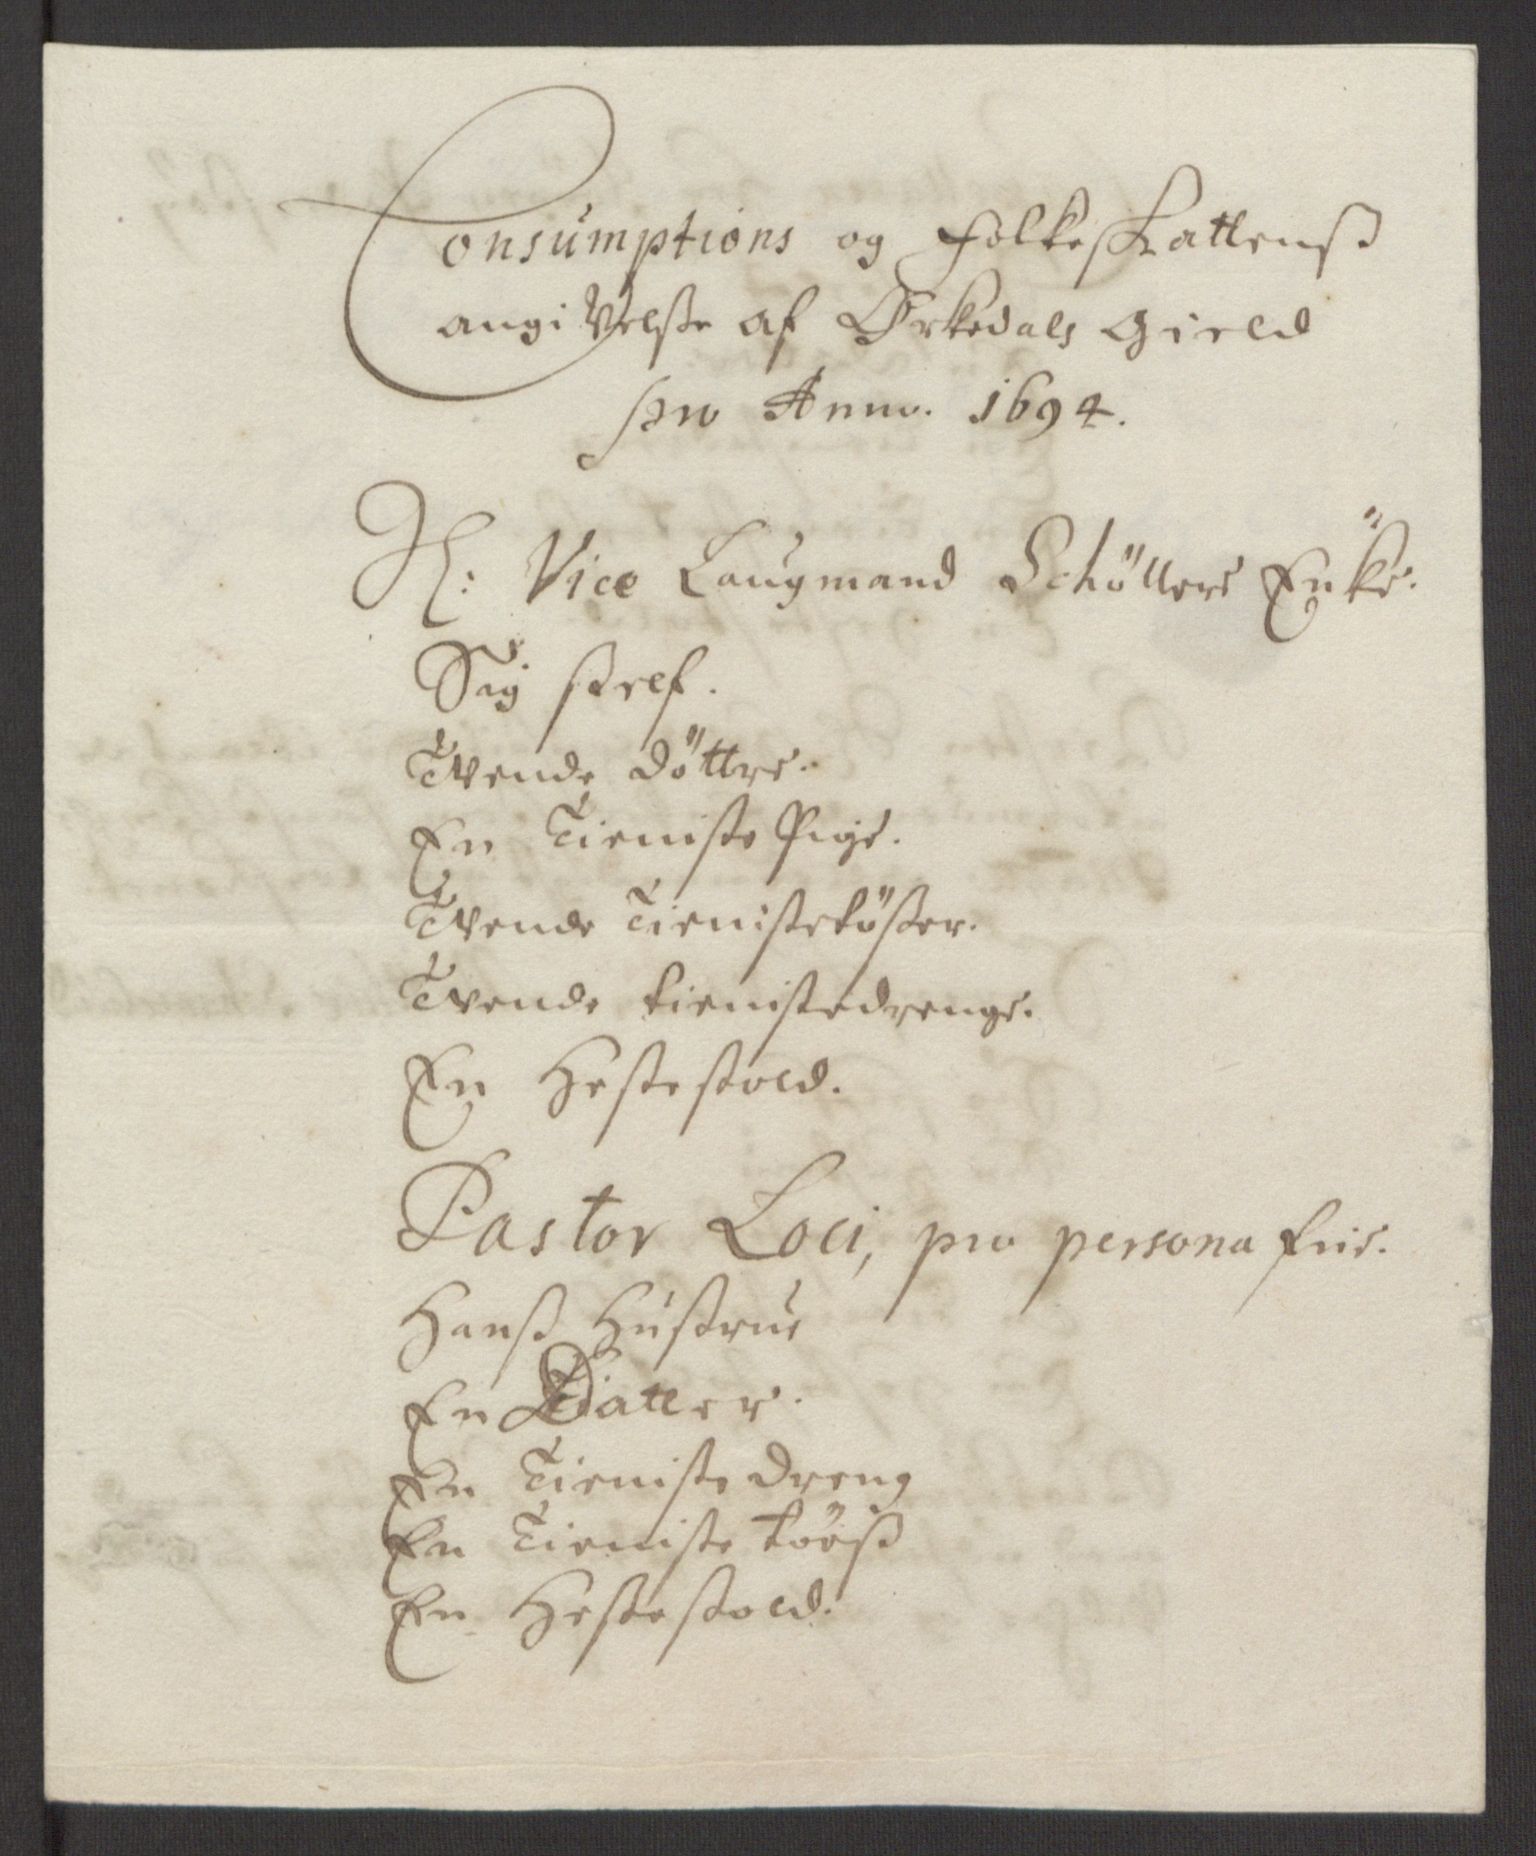 Consumptions og FolkeSkattens
angiVelsse af Ørkedals Gield
pro Anno. 1694.
H: Vice Laugmand Schöllers Enke.
Sig self.
Tvende döttre.
En Tieniste Pige.
Tvende Tienistetöser.
Tvende tienistedrenge.
En Hestestold.
Pastor Loci, pro persona frie.
Hanß Hustrue
En Datter.
En Tieniste dreng
En Tieniste töeß
En Hestestold.